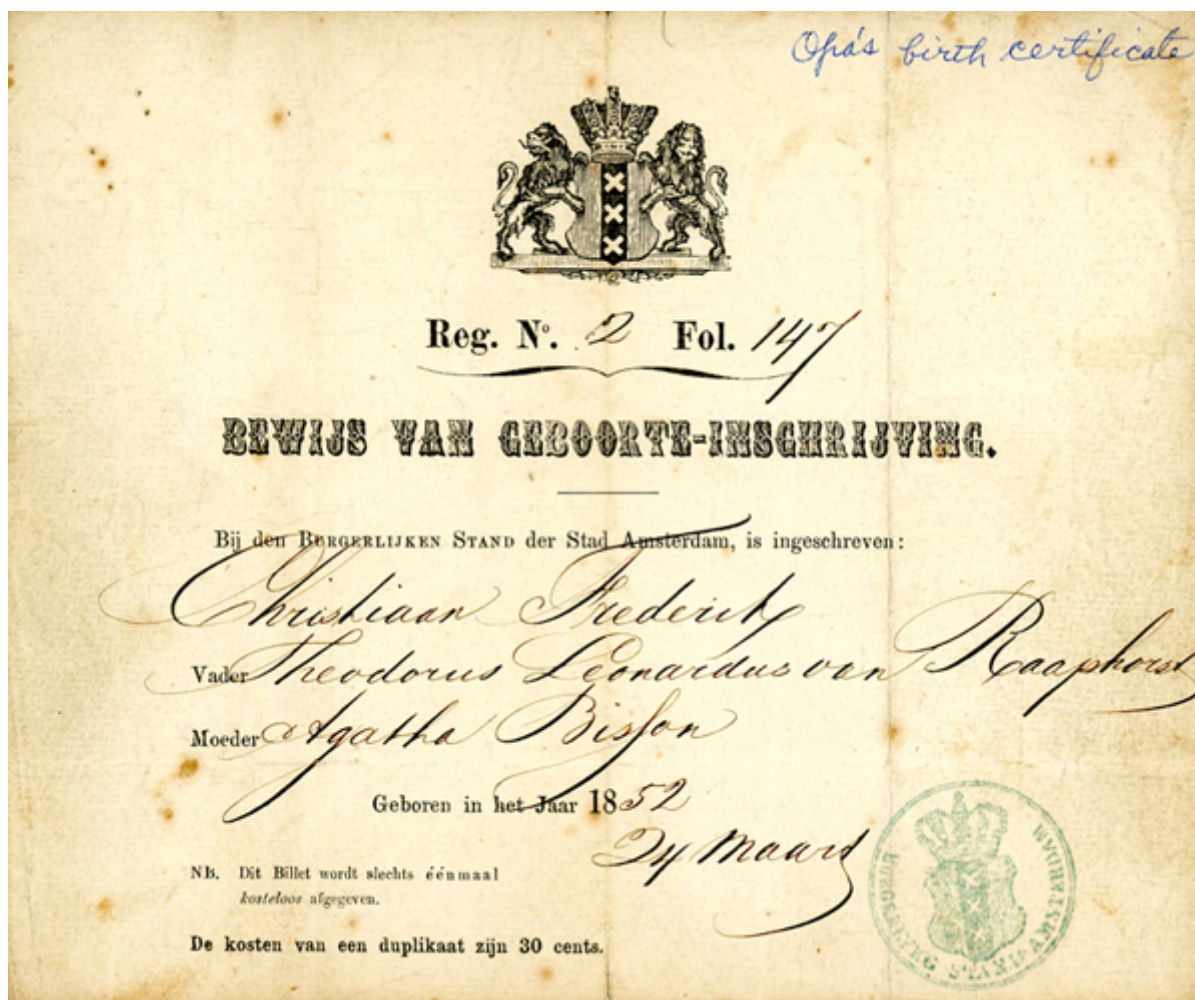 Opa's birth certificate
Reg. No. 2 Fol. 147
BEWIJS VAN GEBOORTE-INSCHRIJVING.
Bij den BURGERLIJKEN STAND der Stad Amsterdam, is ingeschreven:
Christiaan Frederik
Vader Theodorus Leonardus van Raaphorst
Moeder Agatha Bisson
Geboren in het Jaar 1852
24 Maart
NB. Dit Billet wordt slechts éénmaal
kosteloos afgegeven.
De kosten van een duplikaat zijn 30 cents.
BURGERLYKE STAND AMSTERDAM